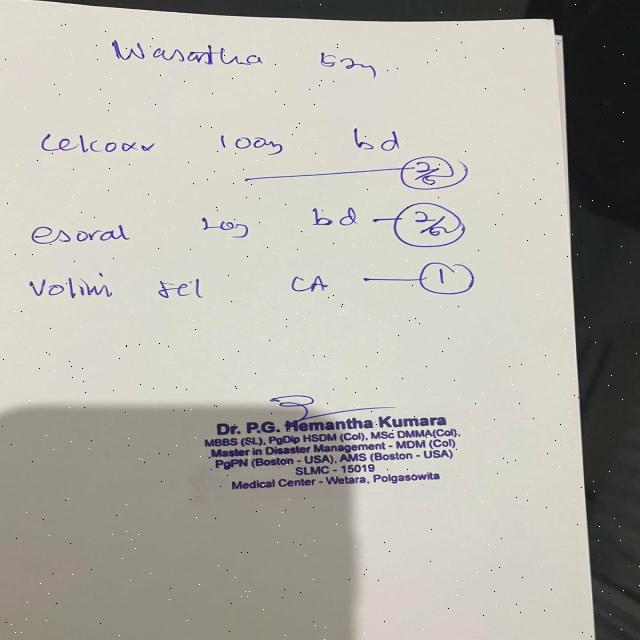 Wasantha 52y
Celcoxx 100mg bd
2/52
esoral 20mg bd — 2/52
Volini gel LA — 1
Dr. P.G. Hemantha Kumara
MBBS (SL), PgDip HSDM (Col), MSc DMMA(Col),
Master in Disaster Management - MDM (Col)
PgPN (Boston - USA), AMS (Boston - USA)
SLMC - 15019
Medical Center - Wetara, Polgasowita